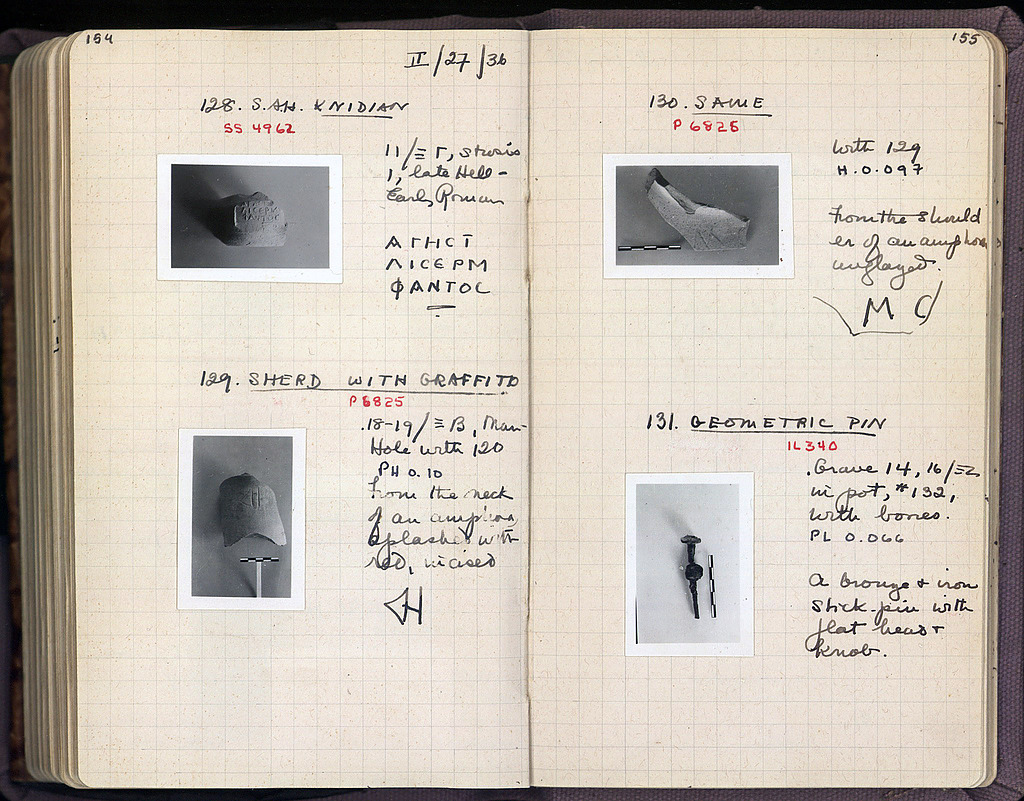 154
II/27/36
128. S.AH. KNIDIAN
SS 4962
11/Ξ Γ, strosis
1, late Hell-
Early Roman
ΑΓΗCΤ
ΛΙCΕΡΜ
ΦΑΝΤΟC
129. SHERD WITH GRAFFITO
P 6825
18-19/Ξ B, Man-
Hole with 120
PH 0.10
From the neck
of an amphora
splashed with
red, incised
155
130. SAME
P 6826
With 129
H. 0.097
From the should
er of an amphora
unglazed.
M
131. GEOMETRIC PIN
IL 340
Grave 14, 16/ΞZ
in pot, #132,
with bones.
PL 0.066
A bronze + iron
stick-pin with
flat head +
knob.